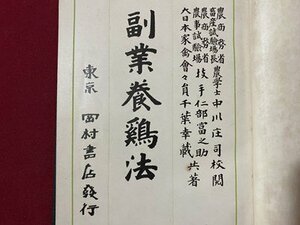 農商務省
畜産試験場長 農學士 中川荘司校閲
農商務省
農事試験場 技手 仁部富之助
大日本家禽會々員 千葉幸蔵 共著
副業養鶏法
東京 西村書店發行